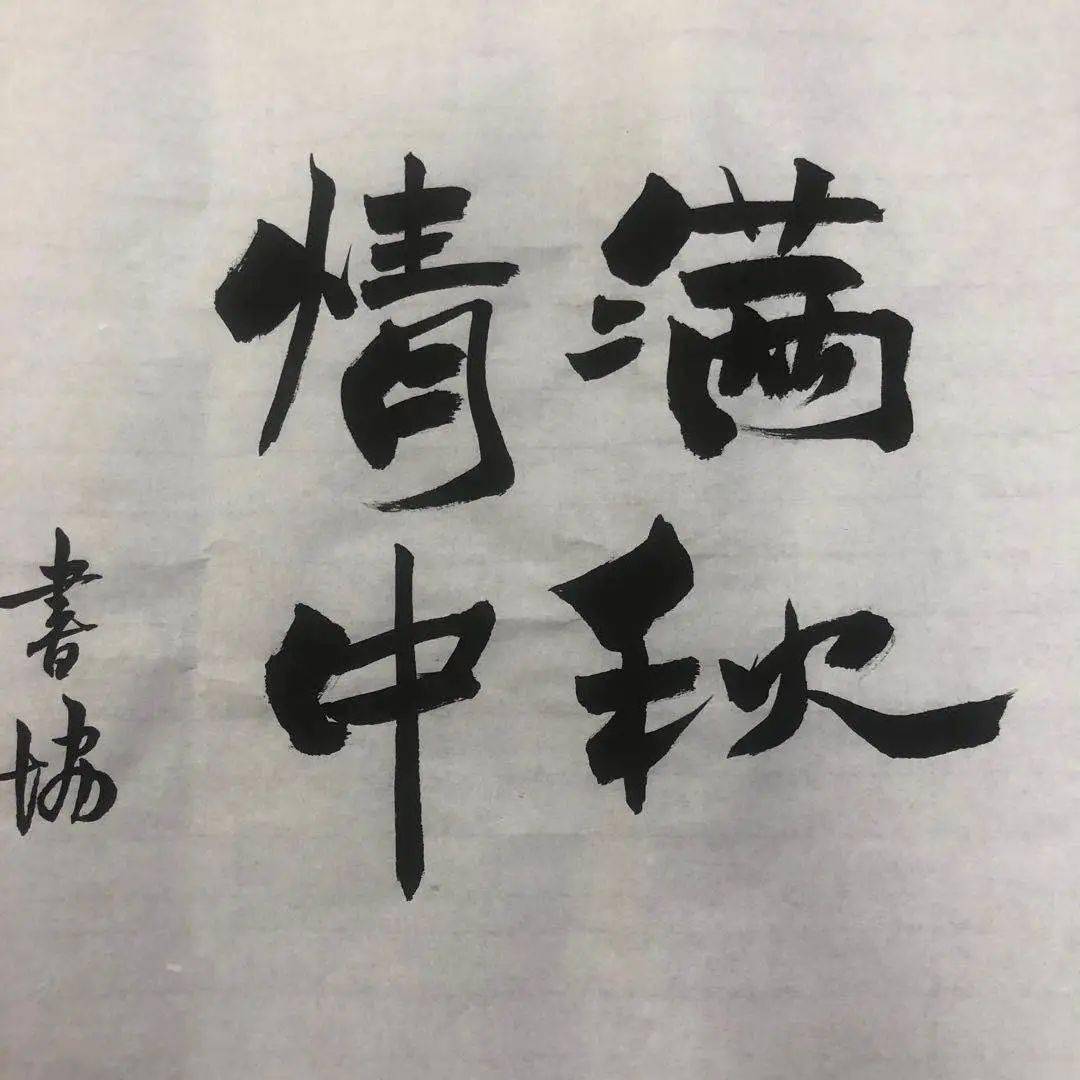 情满
中秋
書協